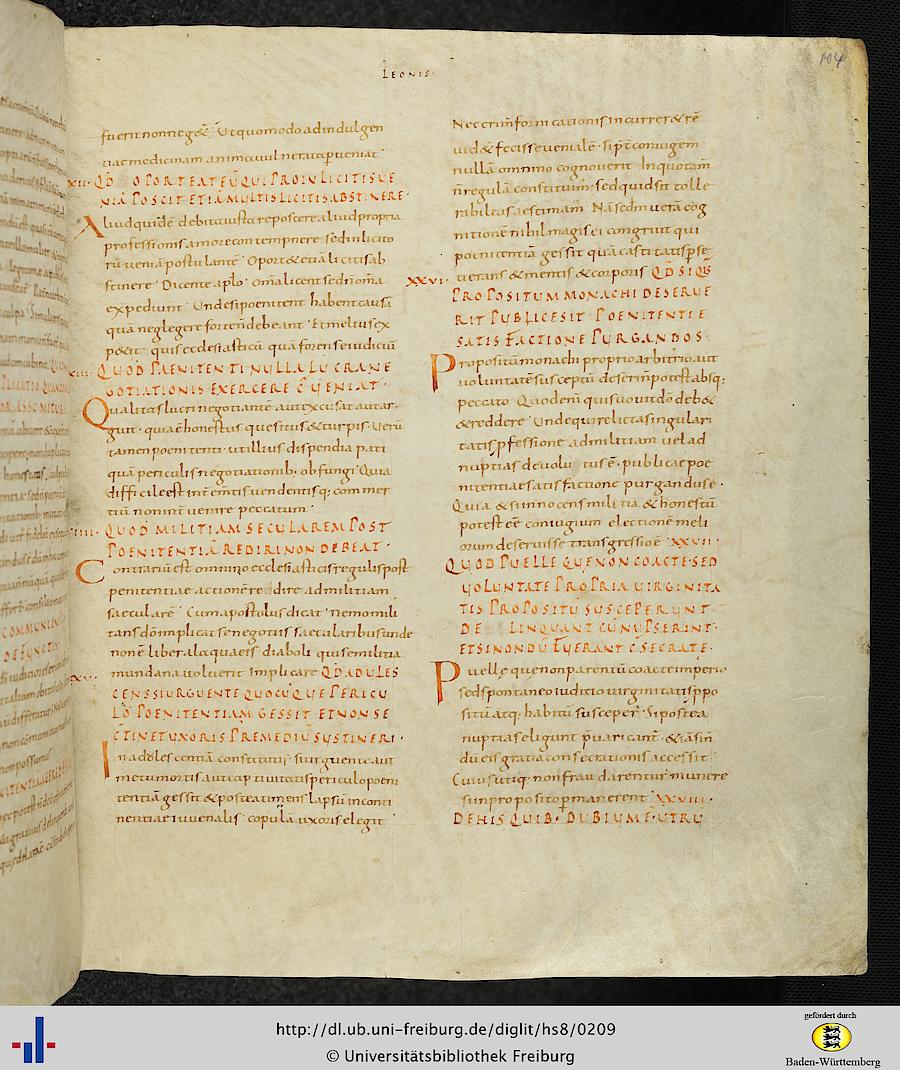 LEONIS·
104
fuerit nonneg&̄· Ut quomodo ad indulgen
tiae medicinam animi vulnerata p̲veniat·
QĐ OPORTEAT EŪ QUI PRO INLICITIS VE
NIĀ POSCIT ETIĀ MULTIS LICITIS ABSTINERE·
Aliud quidē debita iusta reposcere aliud propria
professionis amore contempnere· Sed inlicito
rū veniā postulantē· Oport& etiā licitis ab
stinere· Dicente aplo· Om̄a licent sed n̄ om̄a
expediunt· Unde si poenitent habent causā
quā neglegere forte n̄ debeant· Et melius ex
p&it· quis ecclesiasticū quā forense iudiciū
QUOD PAENITENTI NULLA LUCRA NE
GOTIATIONIS EXERCERE C̄VENIAT·
Qualitas lucri negotiantē aut excusat aut ar
guit· quia ē honestus quesitus & turpis· Verū
tamen poenitenti utilius dispendia pati
quā periculis negotiationib; obfungi· Quia
difficile est int̄ em̄tis vendentisq; commer
tiū non int̄venire peccatum·
IIII· QUOD MILITIAM SECULAREM POST
POENITENTIĀ REDIRI NON DEBEAT·
Contrariū est omnino ecclesiasticis regulis post
penitentiae actionē redire ad militiam
saecularē· Cum apostolus dicat· nemo mili
tans dō implicat se negotiis saecularibus unde
non ē liber a laqueis diaboli qui se militia
mundana voluerit implicare QĐ ADULES
CENS SI URGUENTE QUOCŪQUE PERICU
LO POENITENTIAM GESSIT ET NON SE
C̄TINET UXORIS REMEDIŪ SUSTINERI·
In adolescentiā constitutus si urguente aut
metu mortis aut captivitatis periculo poeni
tentiā gessit & postea timens lapsū inconti
nentiae iuvenalis copulā uxoris elegit
Nec crim̄ fornicationis incurrer& rē
vid& fecisse venialē· si p̄t̄ coniugem
nullā omnino cognoverit· In quo tam̄
n̄ regulā constituim̄· sed quid sit tolle
rabilius aestimam̄· Nā sedm̄ verā cog
nitionē nihil magis ei congruit qui
poenitentiā gessit quā castitatis p̲se
verans & mentis & corporis QĐ SI QIS
XXVI·
PROPOSITUM MONACHI DESERUE
RIT PUBLICE SIT POENITENTIE
SATISFACTIONE PURGANDOS·
Propositū monachi proprio arbitrio aut
voluntate susceptū deserī n̄ potest absq;
peccato· Quod enī quis vovit dō deb&
& reddere· Unde qui relicta singulari
tatis p̲fessione ad militiam vel ad
nuptias devolutus ē· publicae poe
nitentiae satisfactione purgandus ē·
Quia & si innocens militia & honestū
potest eē coniugium electionē meli
orum deseruisse transgressio ē· XXVII·
QUOD PUELLE QUE NON COACTE SED
VOLUNTATE PROPRIA VIRGINITA
TIS PROPOSITŪ SUSCEPERUNT
DELINQUANT CŪ NUPSERINT·
ETSI NONDŪ FUERANT C̄SECRATE·
Puelle que non parentū coacte imperio
sed spontaneo iuditio virginitatis p̲po
sitū atq; habitū susceper̄· Si postea
nuptias eligunt p̲varicant̄· & iā si n̄
dū eis gratia consecrationis accessit·
Cuius utiq; non fraudarentur munere
si in proposito p̲manerent· XXVIII·
DE HIS QUIB· DUBIUM Ē· UTRU
http://dl.ub.uni-freiburg.de/diglit/hs8/0209
© Universitätsbibliothek Freiburg
gefördert durch
Baden-Württemberg